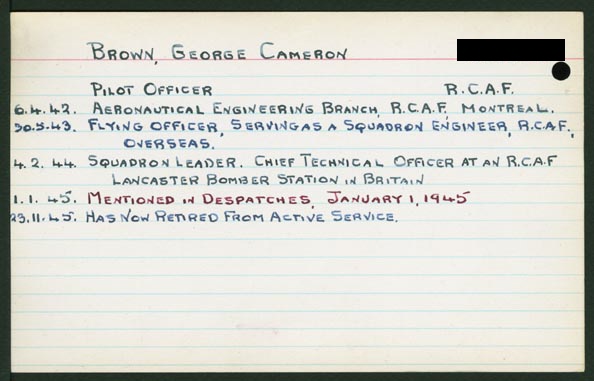 BROWN, GEORGE CAMERON
PILOT OFFICER R.C.A.F.
6.4.42. AERONAUTICAL ENGINEERING BRANCH, R.C.A.F. MONTREAL.
30.5.43. FLYING OFFICER, SERVING AS A SQUADRON ENGINEER, R.C.A.F.,
OVERSEAS.
4.2.44. SQUADRON LEADER. CHIEF TECHNICAL OFFICER AT AN R.C.A.F
LANCASTER BOMBER STATION IN BRITAIN
1.1.45. MENTIONED IN DESPATCHES, JANUARY 1, 1945
23.11.45. HAS NOW RETIRED FROM ACTIVE SERVICE.